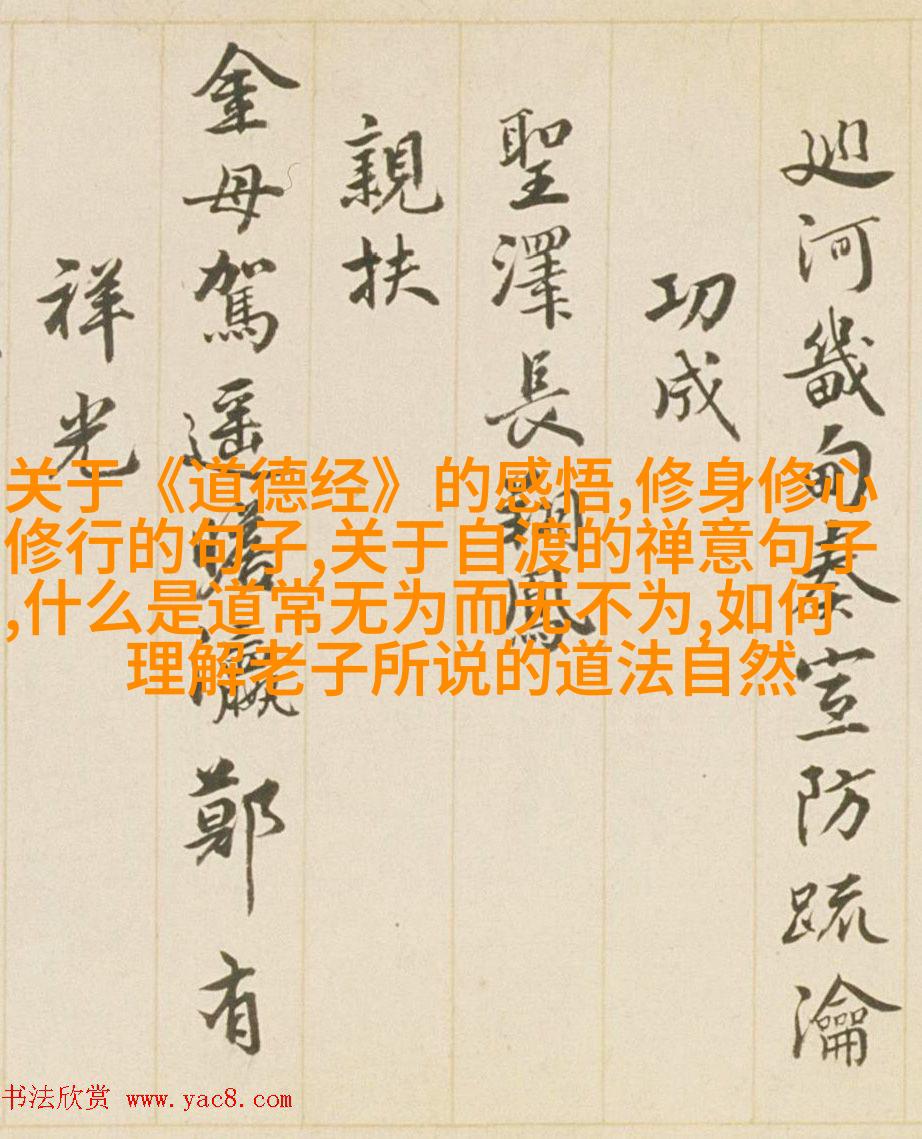 廵河畿甸奏宣防疏瀹
功成
聖澤長翔鳳
親扶
金母駕遥瞻瀛鄭有
祥光
关于《道德经》的感悟,修身修心
修行的句子,关于自渡的禅意句子
,什么是道常无为而无不为,如何
理解老子所说的道法自然
书法欣赏 www.yac8.com